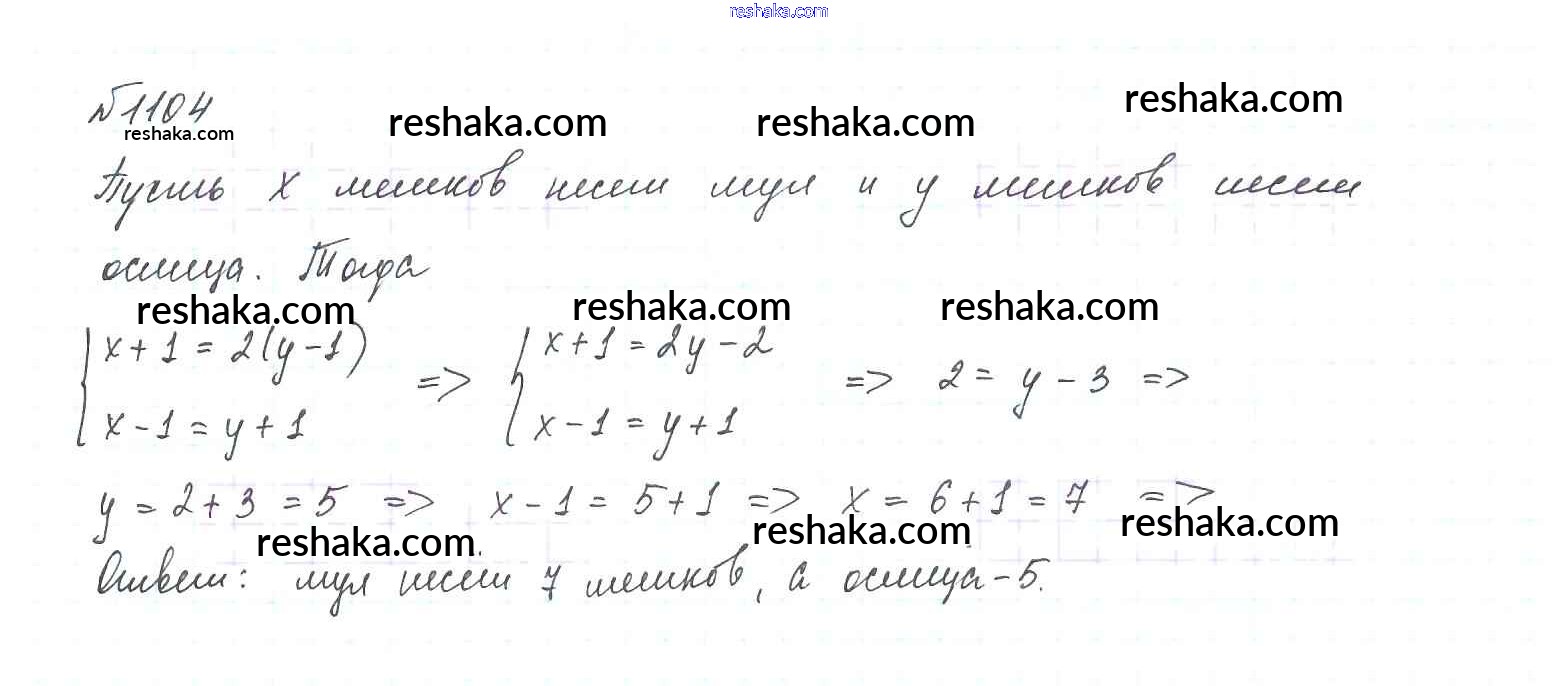 reshaka.com
№1104
reshaka.com reshaka.com reshaka.com reshaka.com
Пусть x мешков несет мул и y мешков несет
ослица. Тогда
reshaka.com reshaka.com reshaka.com
{ x + 1 = 2(y - 1) => { x + 1 = 2y - 2 => 2 = y - 3 =>
x - 1 = y + 1 x - 1 = y + 1
y = 2 + 3 = 5 => x - 1 = 5 + 1 => x = 6 + 1 = 7 =>
reshaka.com reshaka.com reshaka.com
Ответ: мул несет 7 мешков, а ослица - 5.